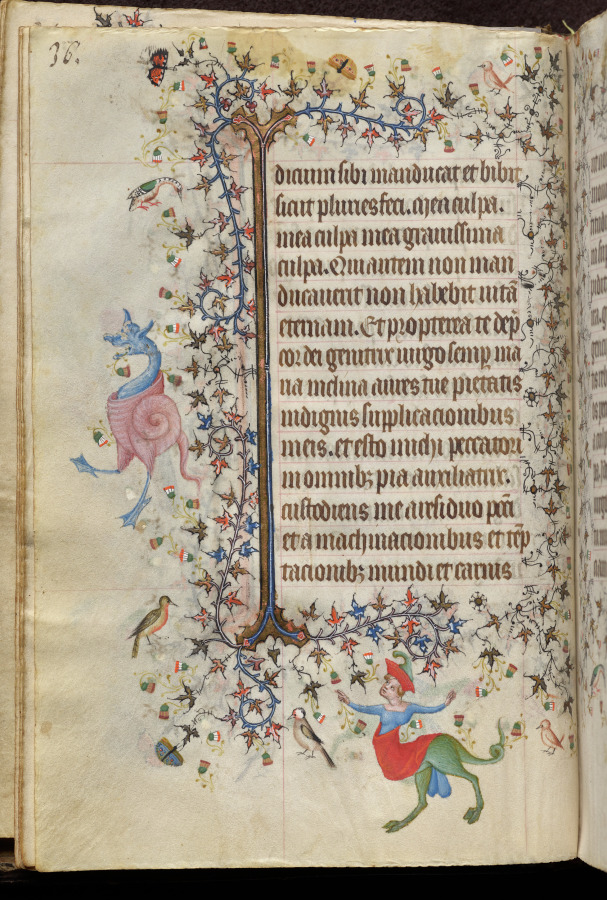 36.
dicium sibi manducat et bibit
sicut pluries feci. Mea culpa.
mea culpa mea grauissima
culpa. Qui autem non man
ducauerit non habebit uitã
eternam. Et propterea te dep̃
cor dei genitrix uirgo semp̱ ma
ria inclina aures tue pietatis
indignis supplicacionibus
meis. et esto michi peccatori
in omnibꝫ pia auxiliatrix.
custodiens me a uesiduo pcc̃i
et a machinacionibus et tẽp
tacionibꝫ mundi et carnis